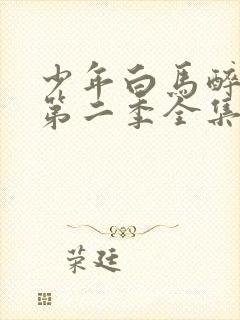 少年白马醉
第二季全集
荣廷